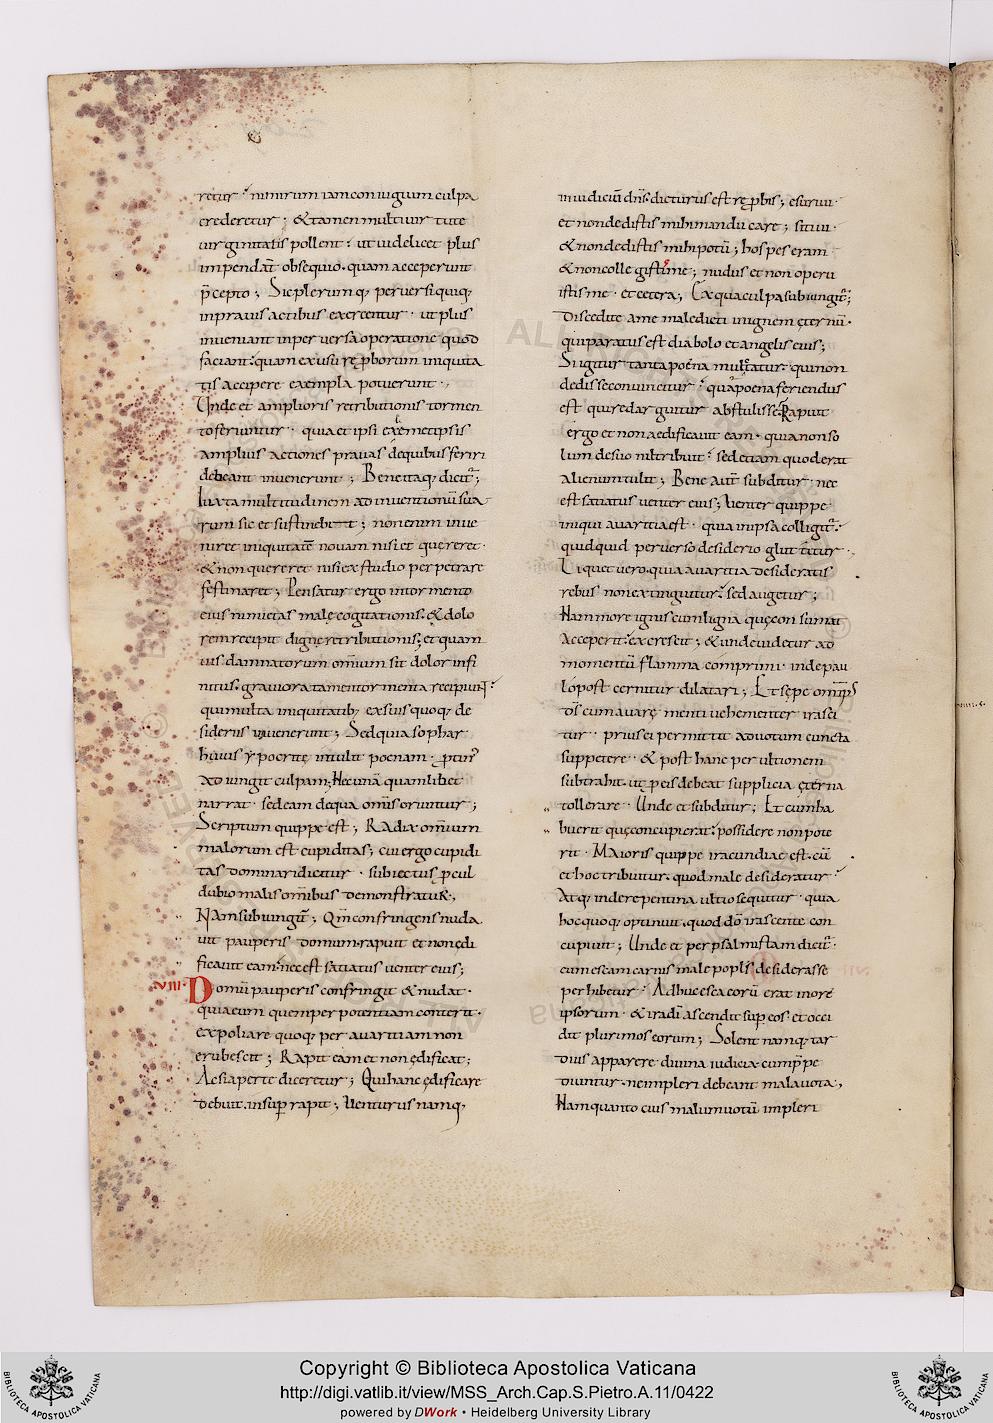 retur ; nimirum iam coniugium culpa
crederetur ; & tamen multi uirtute
uirginitatis pollent ; ut uidelicet plus
impendant obsequio . quam acceperunt
p̄cepto ; Sic plerumq; peruersi quiq;
in prauis actibus excrecentur . ut plus
inueniant in peruersa operatione quod
faciant ; quam ex usu reproborum iniquita
tis accipere exempla potuerunt ;
Unde et amplioris retributionis tormen
to feriuntur . quia et ipsi ex semetipsis
amplius actiones prauas de quibus feriri
debeant inuenerunt ; Bene itaq; dicit̄ ;
Iuxta multitudinem adinuentionū sua
rum sic et sustinebit ; non enim inue
niret iniquitatē nouam nisi et quereret .
& non quereret nisi ex studio perpetrare
festinaret ; Pensatur ergo in tormento
eius nimietas male cogitationis . & dolo
rem recipit digne retributionis ; et quam
uis damnatorum omnium sit dolor infi
nitus . grauiora tamen tormenta recipiunt̄
qui multa iniquitatib; ex suis quoq; de
sideriis inuenerunt ; Sed quia sophar
huius ypocrite intulit poenam . ptin'
adiungit culpam ; Nec unā quamlibet
narrat . sed eam de qua om̄s oriuntur ;
Scriptum quippe est ; Radix omnium
malorum est cupiditas ; cui ergo cupidi
tas dominari dicitur . subiectus pcul
dubio malis omībus demonstratur ;
Nam subiungit̄ ; Qm̄ confringens nuda
uit pauperis domum rapuit et non edi
ficauit eam nec est satiatus uenter eius ;
VIII· Domū pauperis confringit & nudat .
qui a eum quem per potentiam conterit .
expoliare quoq; per auaritiam non
erubescit ; Rapit eam et non ędificat ;
Ac si aperte diceretur ; Qui hanc ędificare
debuit . insup rapit ; Uenturus namq;
in iudiciū dn̄s dicturus est rep̄bis ; esuriui .
et non dedistis mihi manducare ; sitiui .
& non dedistis mihi potū ; hospes eram
& non collegistis me ; nudus et non operu
istis me . et cetera ; Ex qua culpa subiungit̄ ;
Discedite a me maledicti in ignem ęternū .
qui paratus est diabolo et angelis eius ;
Si igitur tanta poena multatur . qui non
dedisse conuincitur ; qua poena feriendus
est qui redarguitur abstulisse Rapuit
ergo et non aedificauit eam . quia non so
lum de suo nil tribuit ; sed etiam quod erat
alienum tulit ; Bene aut̄ subditur . nec
est satiatus uenter eius ; Uenter quippe
iniqui auaritia est . quia in ipsa colligit̄ .
quidquid peruerso desiderio gluttitur .
Liquet uero . quia auaritia desideratis
rebus non extinguitur ; sed augetur ;
Nam more ignis cum ligna quę consumat
acceperit ; excrescit ; & unde uidetur ad
momentū flamma comprimi . inde pau
lo post cernitur dilatari ; Et sepe omp̄s
d̄s cum auarę menti uehementer irasci
tur . prius ei permittit ad uotum cuncta
suppetere . & post hanc per ultionem
subtrahit . ut p eis debeat supplicia ęterna
tollerare . Unde et subditur ; Et cum ha
buerit quę concupierat ; possidere non pote
rit . Maioris quippe iracundiae est . cū
et hoc tribuitur . quod male desideratur .
Atq; inde repentina ultio sequitur . quia
hoc quoq; optinuit . quod dō irascente con
cupiuit ; Unde et per psalmistam dicit̄ .
cum escam carnis male popl's desiderasse
perhibetur . Adhuc esca eorū erat in ore
ipsorum . & ira dī ascendit sup eos . et occi
dit plurimos eorum ; Solent namq; tar
dius apparere diuina iudicia cum p̄pe
diuntur . ne impleri debeant mala uota ,
Nam quanto eius malum uotū impleri
Copyright © Biblioteca Apostolica Vaticana
http://digi.vatlib.it/view/MSS_Arch.Cap.S.Pietro.A.11/0422
powered by DWork • Heidelberg University Library
BIBLIOTECA APOSTOLICA VATICANA
BIBLIOTECA APOSTOLICA VATICANA